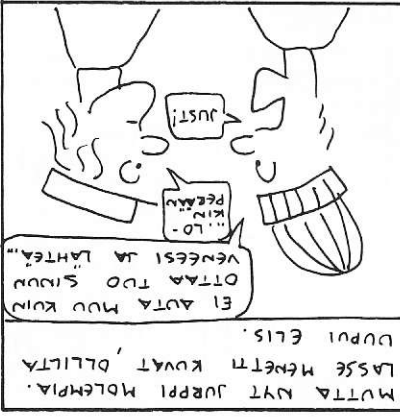 MUTTA NYT JURPPI MOLEMPIA.
LASSE MENETTI KUVAT, OLLILTA
UUPUI ELIS.
EI AUTA MUU KUIN
OTTAA TUO SINUN
VENEESI JA LÄHTEÄ...
...LO-
KIN
PERÄÄN
JUST!